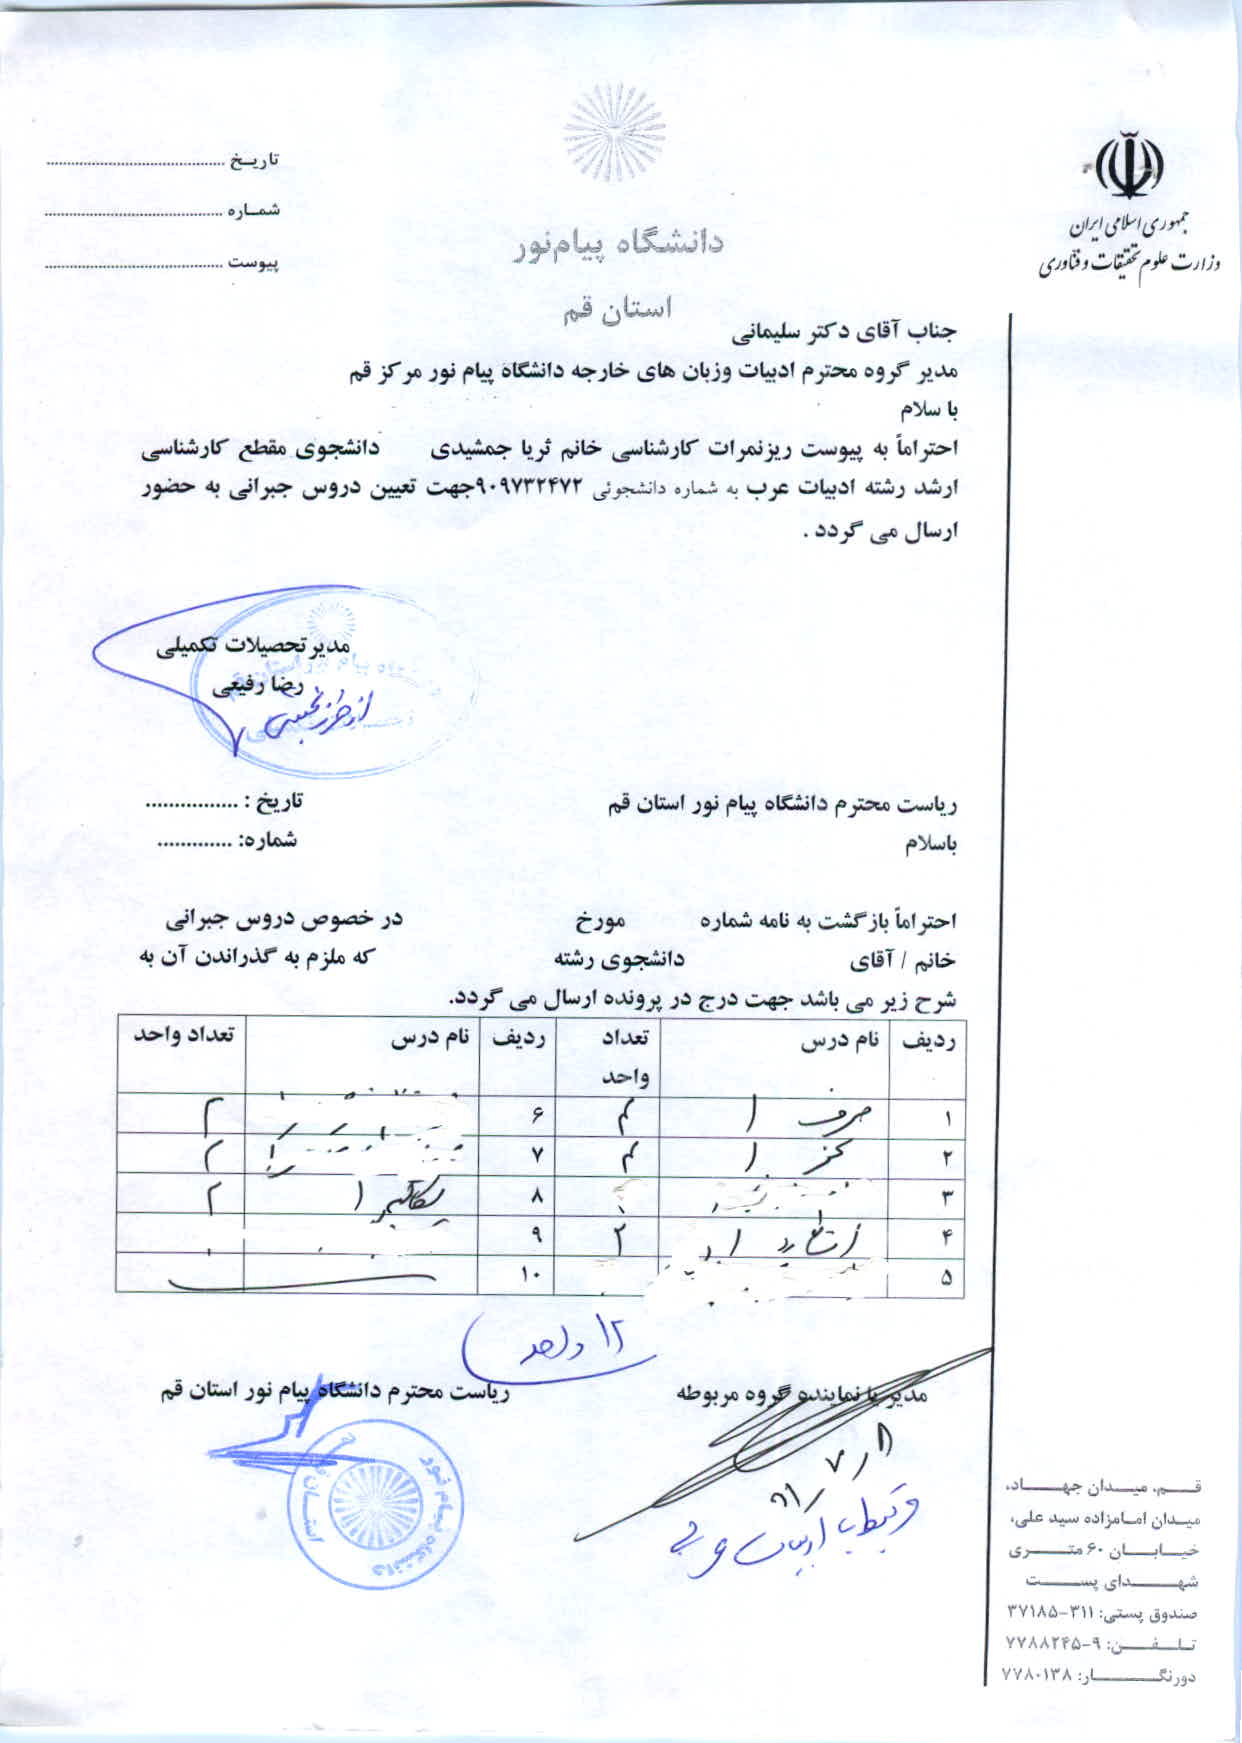 جمهوری اسلامی ایران
وزارت علوم تحقیقات و فنّاوری
دانشگاه پیام‌نور
استان قم
تاریخ ........................................
شماره ........................................
پیوست ........................................
جناب آقای دکتر سلیمانی
مدیر گروه محترم ادبیات وزبان های خارجه دانشگاه پیام نور مرکز قم
با سلام
احتراماً به پیوست ریزنمرات کارشناسی خانم ثریا جمشیدی دانشجوی مقطع کارشناسی
ارشد رشته ادبیات عرب به شماره دانشجوئی ۹۰۹۷۳۲۴۷۲جهت تعیین دروس جبرانی به حضور
ارسال می گردد .
مدیرتحصیلات تکمیلی
رضا رفیعی
از طرف
ریاست محترم دانشگاه پیام نور استان قم
تاریخ : ................
باسلام
شماره: .............
احتراماً بازگشت به نامه شماره مورخ در خصوص دروس جبرانی
خانم / آقای دانشجوی رشته که ملزم به گذراندن آن به
شرح زیر می باشد جهت درج در پرونده ارسال می گردد.
ردیف نام درس تعداد واحد ردیف نام درس تعداد واحد
۱ صرف ۱ ۴ ۶ ۲
۲ نحو ۱ ۴ ۷ ۲
۳ ۸ مکالمه ۱ ۲
۴ ۲ ۹
۵ ۱۰
۱۲ واحد
مدیر یا نماینده گروه مربوطه
ریاست محترم دانشگاه پیام نور استان قم
۹۱/۷/۸
ادبیات عربی
دانشگاه پیام نور
استان قم
قم، میدان جهاد،
میدان امامزاده سید علی،
خیابان ۶۰ متری
شهدای پست
صندوق پستی: ۳۱۱-۳۷۱۸۵
تلفن: ۹-۷۷۸۸۲۴۵
دورنگار: ۷۷۸۰۱۳۸